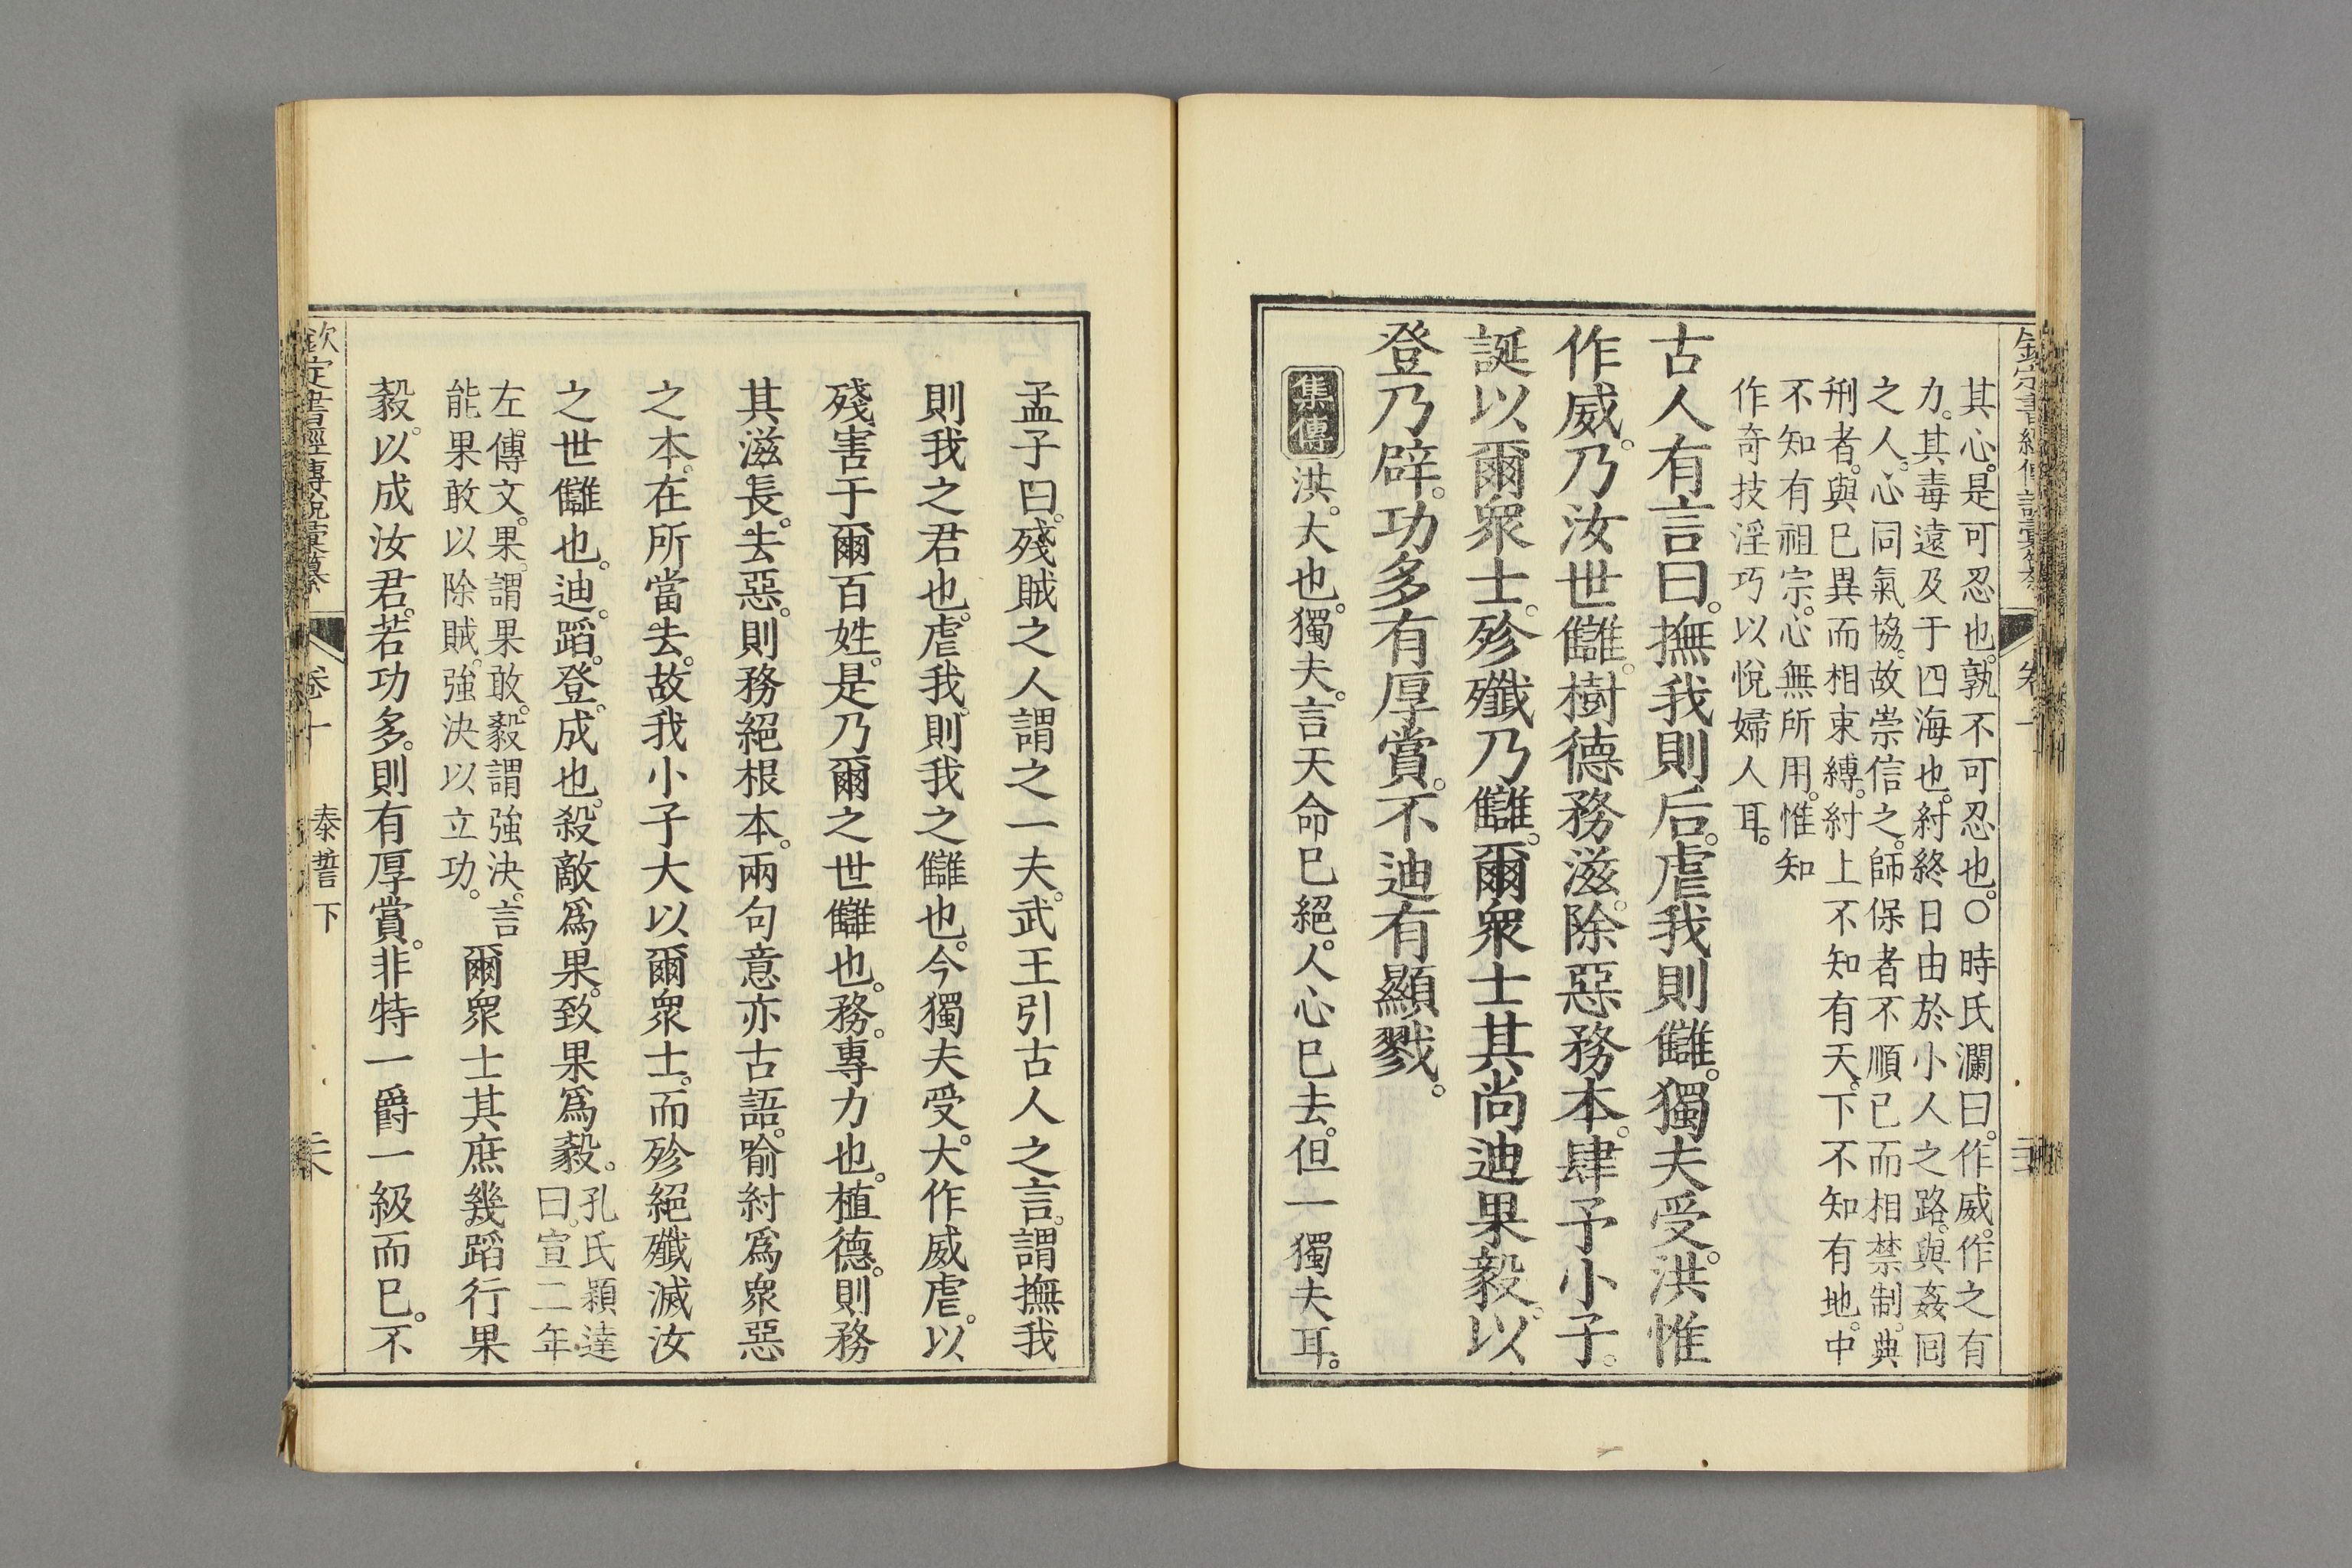 其心。是可忍也。孰不可忍也。○時氏瀾曰。作威。作之有
力。其毒遠及于四海也。紂終日由於小人之路。與姦回
之人。心同氣協。故崇信之。師保者不順已而相禁制。典
刑者。與巳異而相束縛。紂上不知有天。下不知有地。中
不知有祖宗。心無所用。惟知
作奇技淫巧以悅婦人耳。
古人有言曰。撫我則后。虐我則讎。獨夫受。洪惟
作威。乃汝世讎。樹德務滋。除惡務本。肆予小子。
誕以爾眾士。殄殲乃讎。爾眾士其尚迪果毅。以
登乃辟。功多有厚賞。不迪有顯戮。
集傳 洪。大也。獨夫。言天命巳絕。人心巳去。但一獨夫耳。
孟子曰。殘賊之人謂之一夫。武王引古人之言。謂撫我
則我之君也。虐我。則我之讎也。今獨夫受。大作威虐。以
殘害于爾百姓。是乃爾之世讎也。務。專力也。植德。則務
其滋長。去惡。則務絕根本。兩句意亦古語。喻紂爲眾惡
之本。在所當去。故我小子大以爾眾士。而殄絕殲滅汝
之世讎也。迪。蹈。登。成也。殺敵爲果。致果爲毅。孔氏穎達
曰。宣二年
左傳文。果。謂果敢。毅謂強決。言
能果敢以除賊。強決以立功。爾眾士其庶幾蹈行果
毅。以成汝君。若功多。則有厚賞。非特一爵一級而巳。不
欽定書經傳說彙纂 卷十 泰誓下